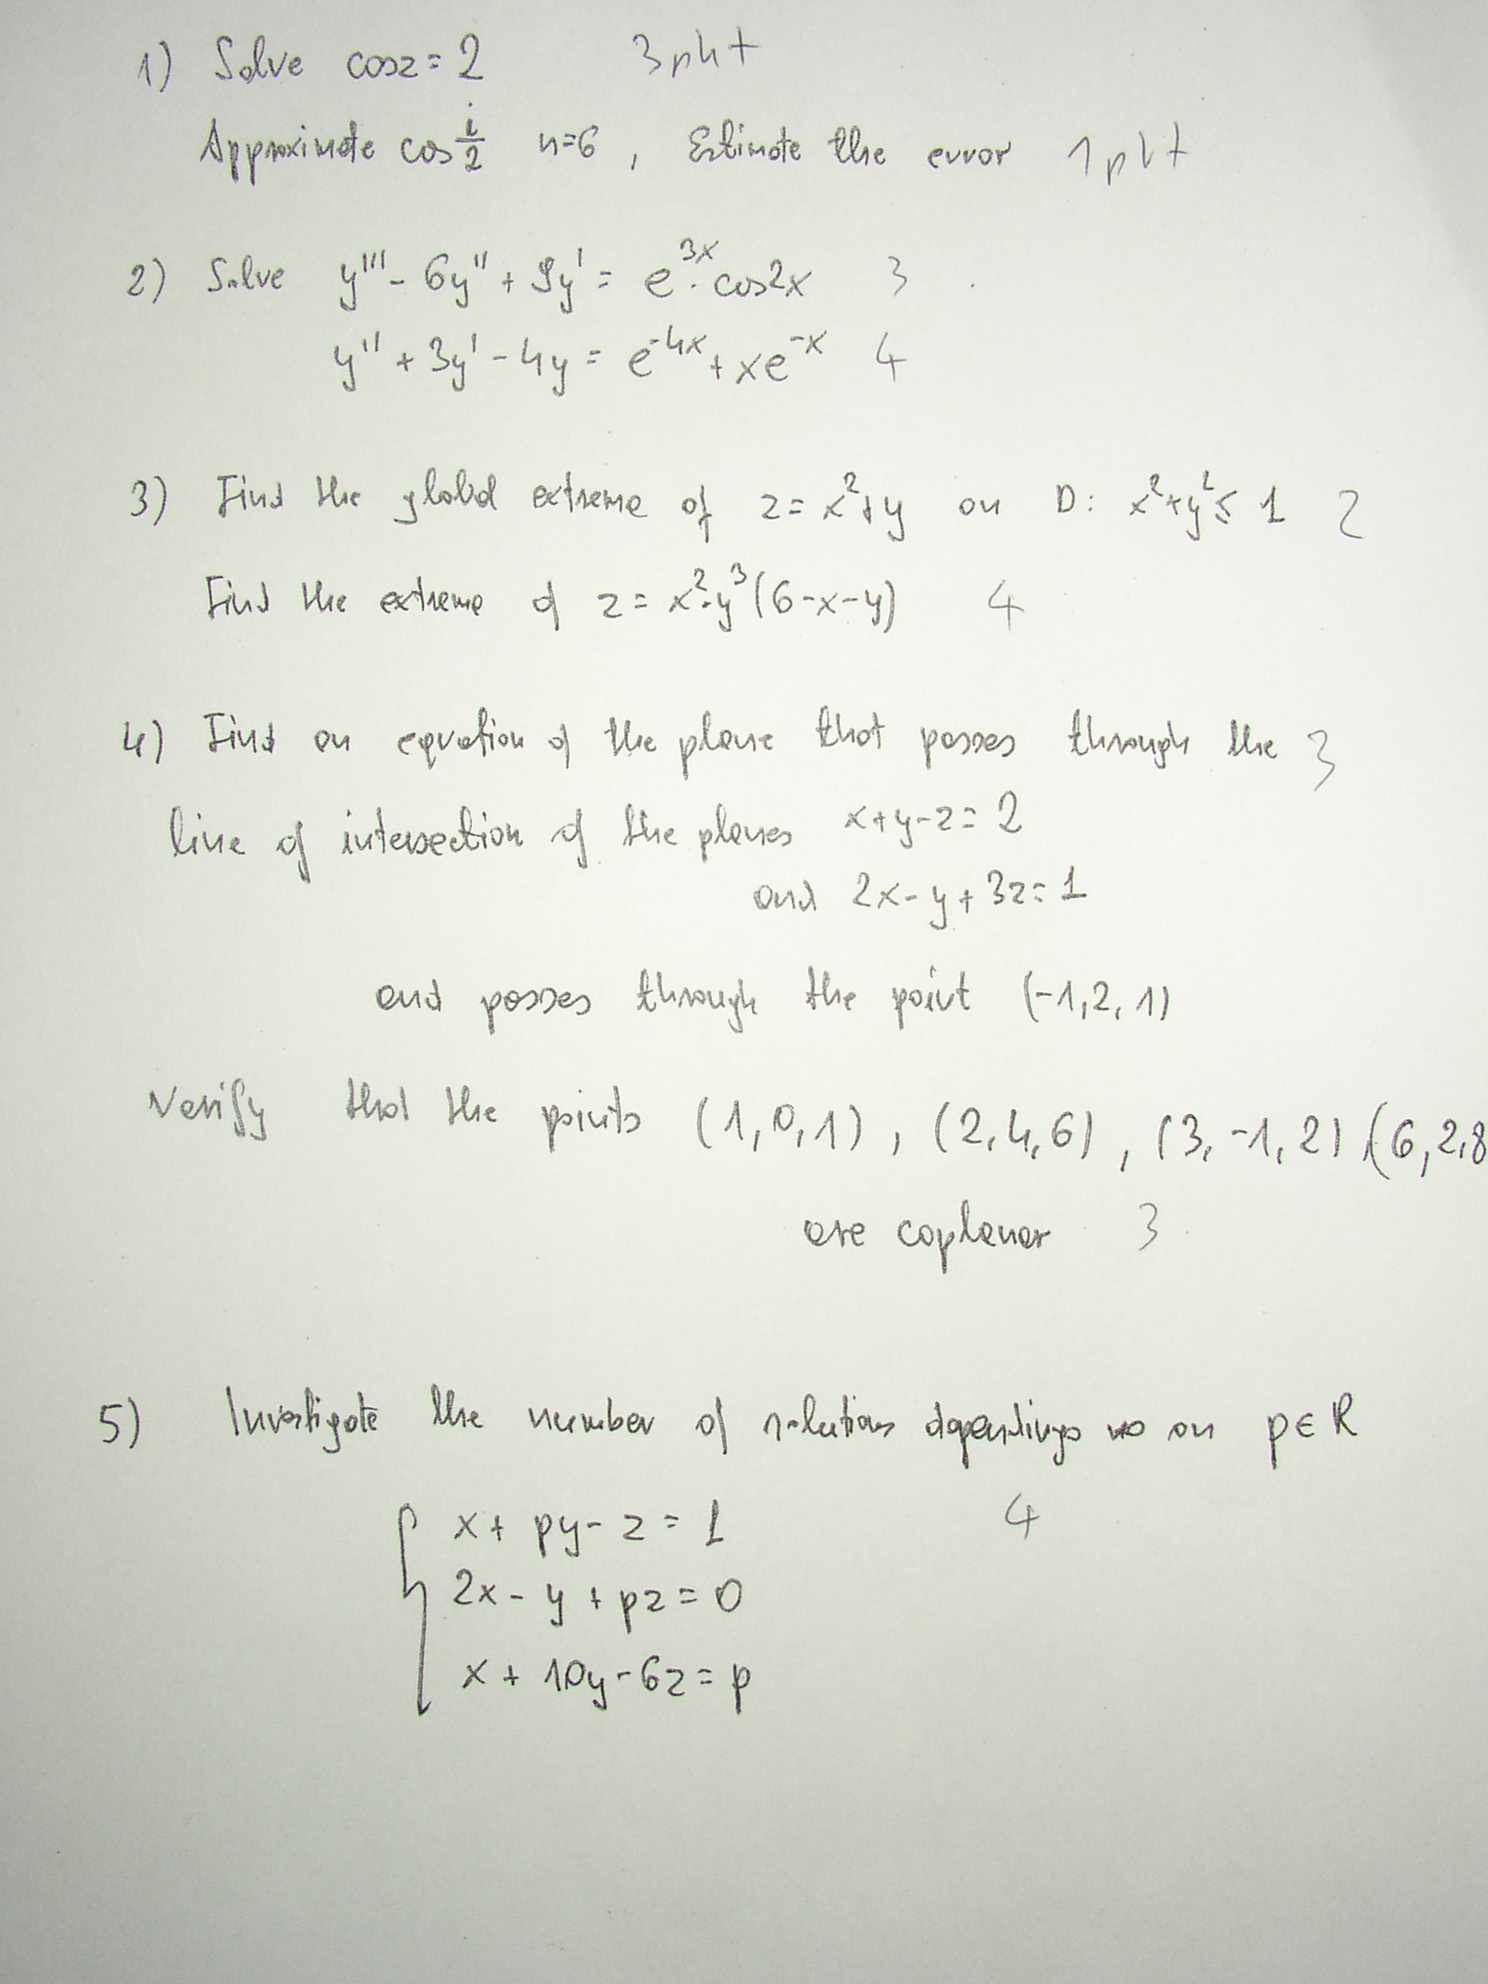 1) Solve cosz = 2 3 pkt
Approximate cos i/2 n=6, Estimate the error 1 pkt
2) Solve y''' - 6y'' + 9y' = e^3x · cos2x 3
y'' + 3y' - 4y = e^-4x + xe^-x 4
3) Find the global extreme of z = x² + y on D: x² + y² ≤ 1 2
Find the extreme of z = x² · y³ (6 - x - y) 4
4) Find an equation of the plane that passes through the 3
line of intersection of the planes x + y - z = 2
and 2x - y + 3z = 1
and passes through the point (-1, 2, 1)
Verify that the points (1, 0, 1), (2, 4, 6), (3, -1, 2), (6, 2, 8
are coplanar 3
5) Investigate the number of solutions dependings on p ∈ R
4
x + py - z = 1
2x - y + pz = 0
x + 10y - 6z = p